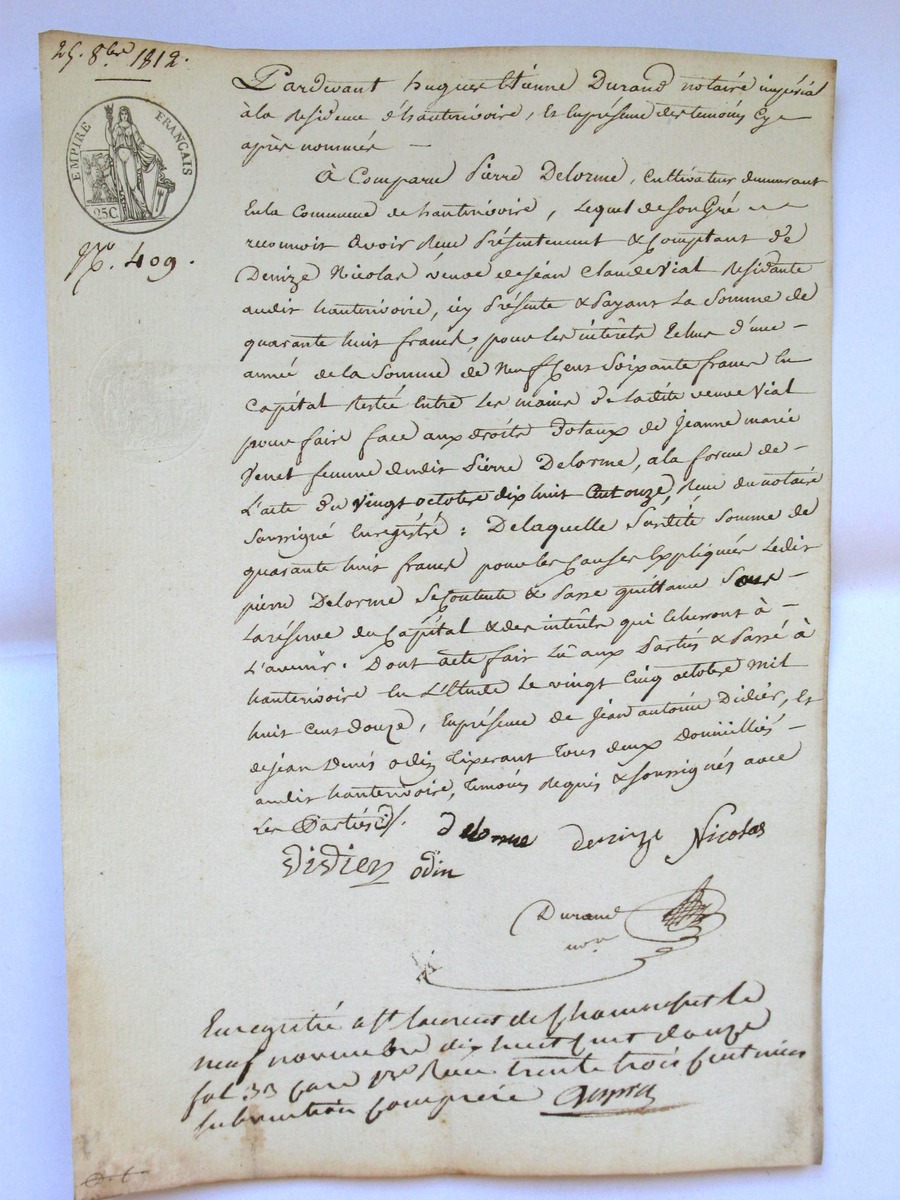 25. 8bre 1812.
EMPIRE FRANÇAIS
25C
No. 409.
Pardevant hugues Etienne Durand notaire impérial
à la Residence d'hauterivoire, Et En présence des temoins Cy
après nommés —
À Comparu Pierre Delorme, Cultivateur demeurant
En la Commune de hauterivoire, Lequel de Son Gré
reconnoit avoir Recu Présentement & Comptant de
Denize Nicolas veuve de jean Claude Vial Residante
audit hauterivoire, icy Présente & Payant La Somme de
quarante huit francs, pour les intérêts Echus d'une
année de la Somme de Neuf Cent Soixante francs En
Capital Restée Entre Les mains de Ladite veuve Vial
pour faire face aux droits Dotaux de Jeanne marie
Venet femme dudit Pierre Delorme, a la forme de
L'acte du vingt octobre dix huit Cent onze, Recu du notaire
Soussigné Enregistré : De laquelle Susdite Somme de
quarante huit francs pour les Causes Expliquées Ledit
pierre Delorme Se Contente & Passe quittance Sous
La réserve du Capital & des intérêts qui Echerront à
L'avenir. Dont acte fait Lû aux Parties & Passé à
hauterivoire En L'Etude Le vingt Cinq octobre mil
huit Cent douze, En présence de Jean antoine Didier, Et
de jean Denis odin Tixerant Tous deux Domiciliés
audit hauterivoire, Temoins Requis & Soussignés avec
Les Parties
delorme denize Nicolas
Didier odin
Durand
nore
Enregistré a St laurent de Chamousset le
neuf novembre dix huit cent douze
fol 33 Case Recu trente trois Centimes
subvention Comprise